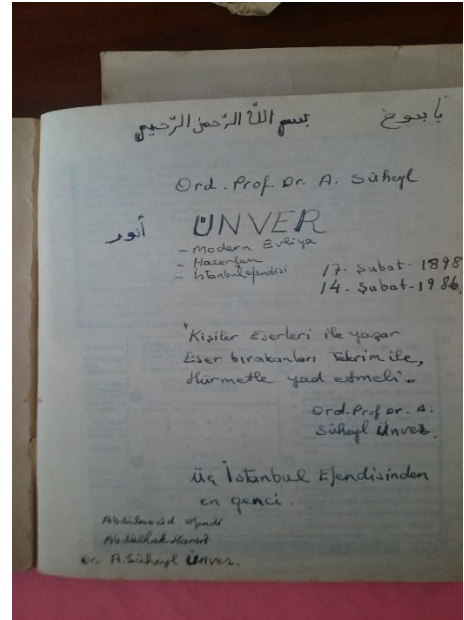 بسم الله الرحمن الرحيم
Ord. Prof. Dr. A. Süheyl
ÜNVER أنور
- Modern Evliya
- Hazerfan
- İstanbulefendisi
17. Şubat. 1898
14. Şubat-1986.
"Kişiler Eserleri ile yaşar
Eser bırakanları Tekrim ile,
Hürmetle yad etmeli"..
Ord. Prof Dr. A.
Süheyl Ünver.
Üç İstanbul Efendisinden
en genci.
Abdülmecid efendi
Abdülhak Hamit
Dr. A. Süheyl Ünver.